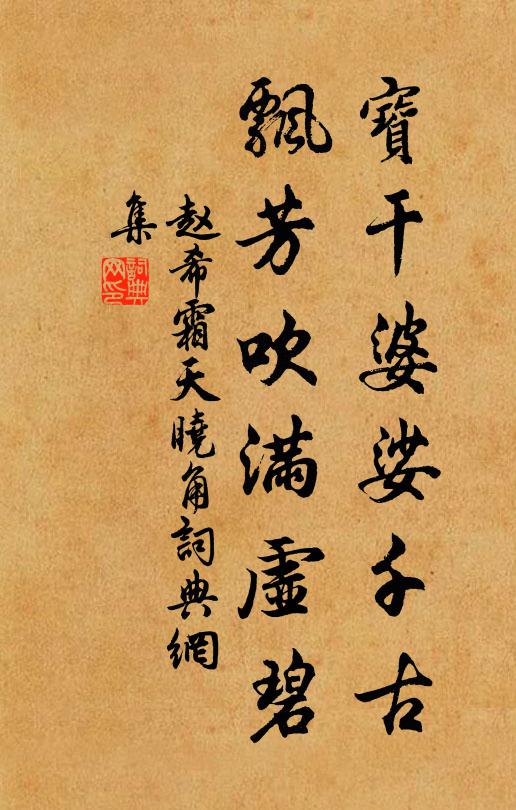 寶干婆娑千古
飄芳吹滿虛碧
赵希霜天曉角詞典網
集
詞典
网印